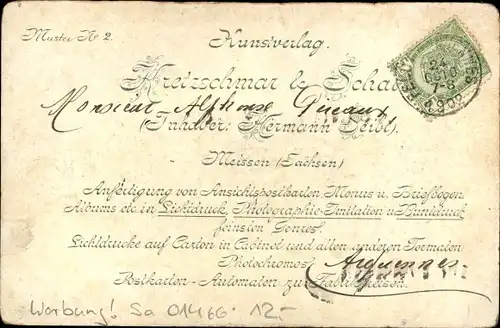 Muster No 2.
Kunstverlag.
Kretzschmar & Schatz
Monsieur Alphonse Ducaux
(Inhaber: Hermann Seibt).
Meissen (Sachsen)
Anfertigung von Ansichtspostkarten, Menus u. Briefbogen
Albums etc. in Lichtdruck, Photographie-Imitation u. Buntdruck
feinsten Genres.
Lichtdrucke auf Carton in Cabinet und allen anderen Formaten.
Photochromos.
Postkarten-Automaten zu Fabrikpreisen.
24
OCTO
7-8
1900
Werbung! Sa 01466 12,-